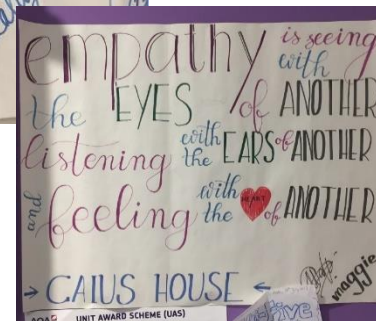 empathy is seeing with
the EYES of ANOTHER
listening with the EARS of ANOTHER
and feeling with the HEART of ANOTHER
→ CAIUS HOUSE ←
maggie
AQA UNIT AWARD SCHEME (UAS)